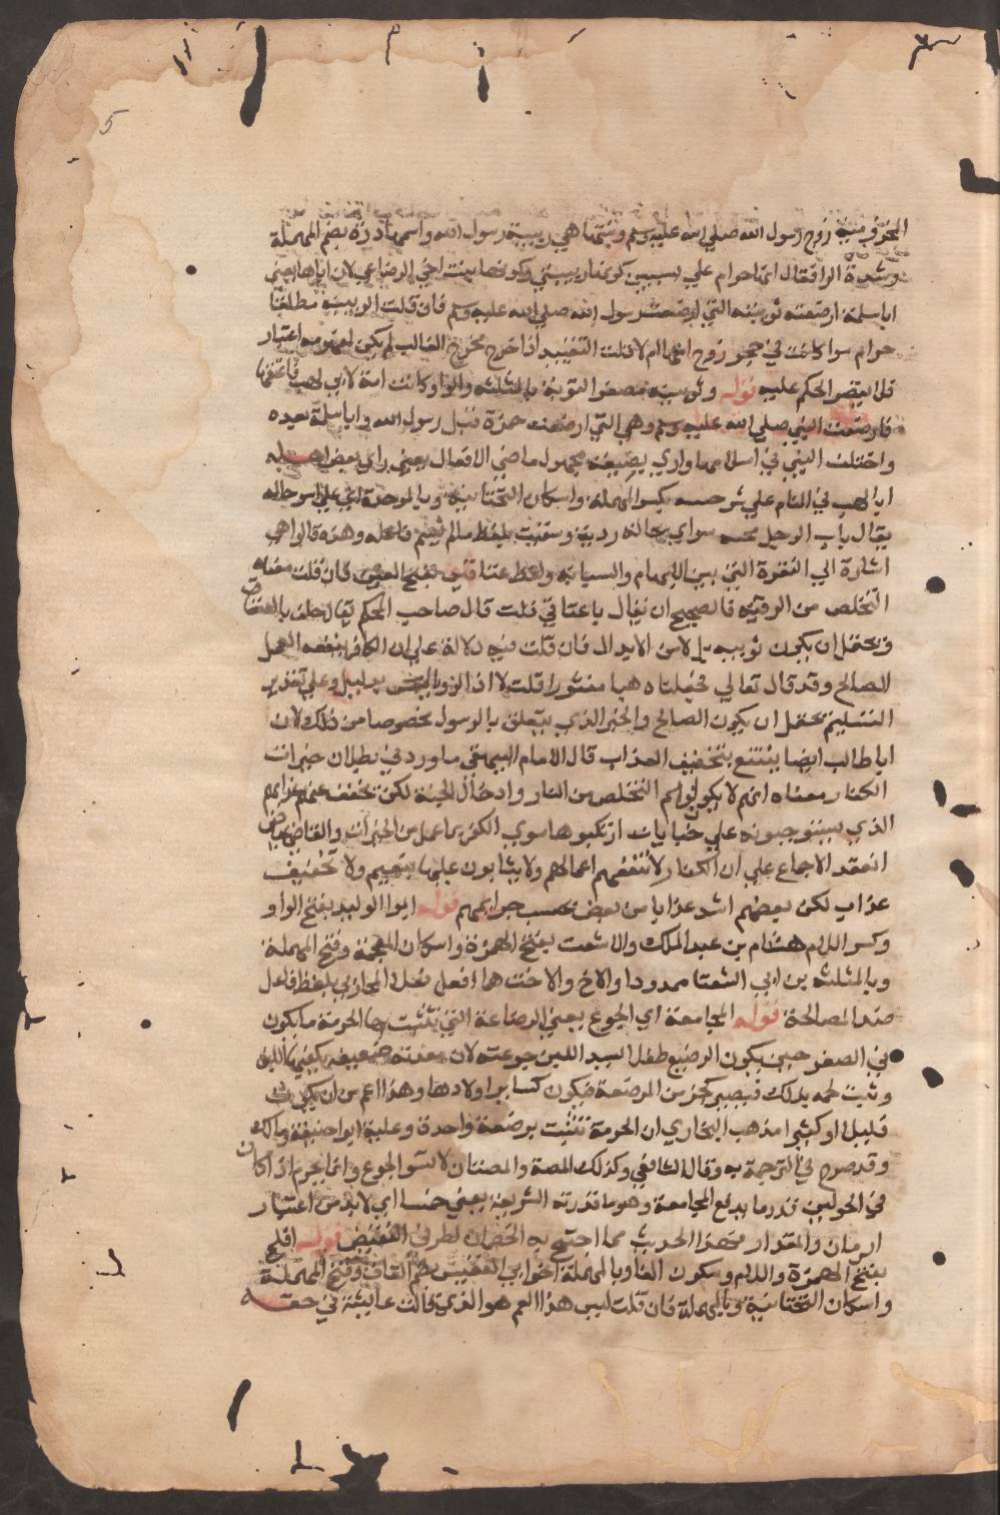 5
المخزومية زوج رسول الله صلى الله عليه وسلم وبنتها هي ربيبة رسول الله واسمها درة بضم المهملة
وشدة الرا فقال انها حرام علي بسببين كونها ربيبتي وكونها بنت اخي الرضاعي لان اباها يعني
ابا سلمة ارضعته ثويبة التي ارضعت رسول الله صلى الله عليه وسلم فان قلت الربيبة مطلقا
حرام سوا كانت في حجر زوج امها ام لا قلت التقييد اذا خرج مخرج الغالب لم يكن لمفهومه اعتبار
فلا يقصر الحكم عليه قوله وثويبة مصغر الثوبة بالمثلثة والواو كانت امة لابي لهب فاعتقها
فارضعت النبي صلى الله عليه وسلم وهي التي ارضعت حمزة قبل رسول الله وابا سلمة بعده
واختلف في اسلامها واري بصيغة مجهول ماضي الافعال يعني راى بعض اهله
ابا لهب في المنام علي شر حيبه بكسر المهملة واسكان التحتانية وبالموحدة اي علي اسو حاله
يقال بات الرجل بحيبه سو اي بحالة ردية وسقيت بلفظ ما لم يسم فاعله وهذه قالوا هي
اشارة الي النقرة التي بين الابهام والسبابة ولفظ عتاقتي بفتح العين فان قلت معناه
التخلص من الرقية فالصحيح ان يقال باعتاقي قلت قال صاحب المحكم يقال حلف بالعتاق
ويحتمل ان يكون ثويبة بدلا من الابدال فان قلت فيه دلالة علي ان الكافر ينفعه العمل
الصالح وقد قال تعالي فجعلناه هبا منثورا قلت لا اذ الرويا ليس بدليل وعلي تقدير
التسليم يحتمل ان يكون الصالح والخير الذي يتعلق بالرسول مخصوصا من ذلك لان
ابا طالب ايضا ينتفع بتخفيف العذاب قال الامام البيهقي ما ورد في بطلان خيرات
الكفار معناه انهم لا يكون لهم التخلص من النار وادخال الجنة لكن يخفف عنهم عذابهم
الذي يستوجبونه علي جنايات ارتكبوها سوي الكفر بما عمل من الخيرات والقاضي عياض
انعقد الاجماع علي ان الكفار لا تنفعهم اعمالهم ولا يثابون عليها بنعيم ولا تخفيف
عذاب لكن بعضهم اشد عذابا من بعض بحسب جرايمهم قوله ابوا الوليد بفتح الواو
وكسر اللام هشام بن عبد الملك والاشعث بفتح الهمزة واسكان المعجمة وفتح المهملة
وبالمثلثة بن ابي الشعثا ممدودا والاخ والاخت هما افعل نقل المحاربي بلفظ فاعل
ضد المصالحة قوله المجاعة اي الجوع يعني الرضاعة التي تثبت بها الحرمة ما يكون
في الصغر حين يكون الرضيع طفل يسد اللبن جوعته لان معدته ضعيفة يكفيها اللبن
وينبت لحمه بذلك فيصير كجز من المرضعة فيكون كساير اولادها وهذا اعم من ان يكون
قليلا او كثيرا مذهب البخاري ان الحرمة تثبت برضعة واحدة وعليه ابو حنيفة ومالك
وقد صرح في الترجمة به وقال الشافعي وكذلك المصة والمصتان لا تسد الجوع وانما يحرم اذا كان
في الحولين قدر ما يدفع المجاعة وهو ما قدرته الشريعة يعني خمسا اي لابد من اعتبار
الزمان والمقدار فهذا الحديث مما احتج به الخصمان لطرفي النقيض قوله افلح
بفتح الهمزة واللام وسكون الفا وبالمهملة اخو ابي القعيس بضم القاف وفتح المهملة
واسكان التحتانية وبالمهملة فان قلت ليس هذا العم هو الذي قالت عايشة في حقه